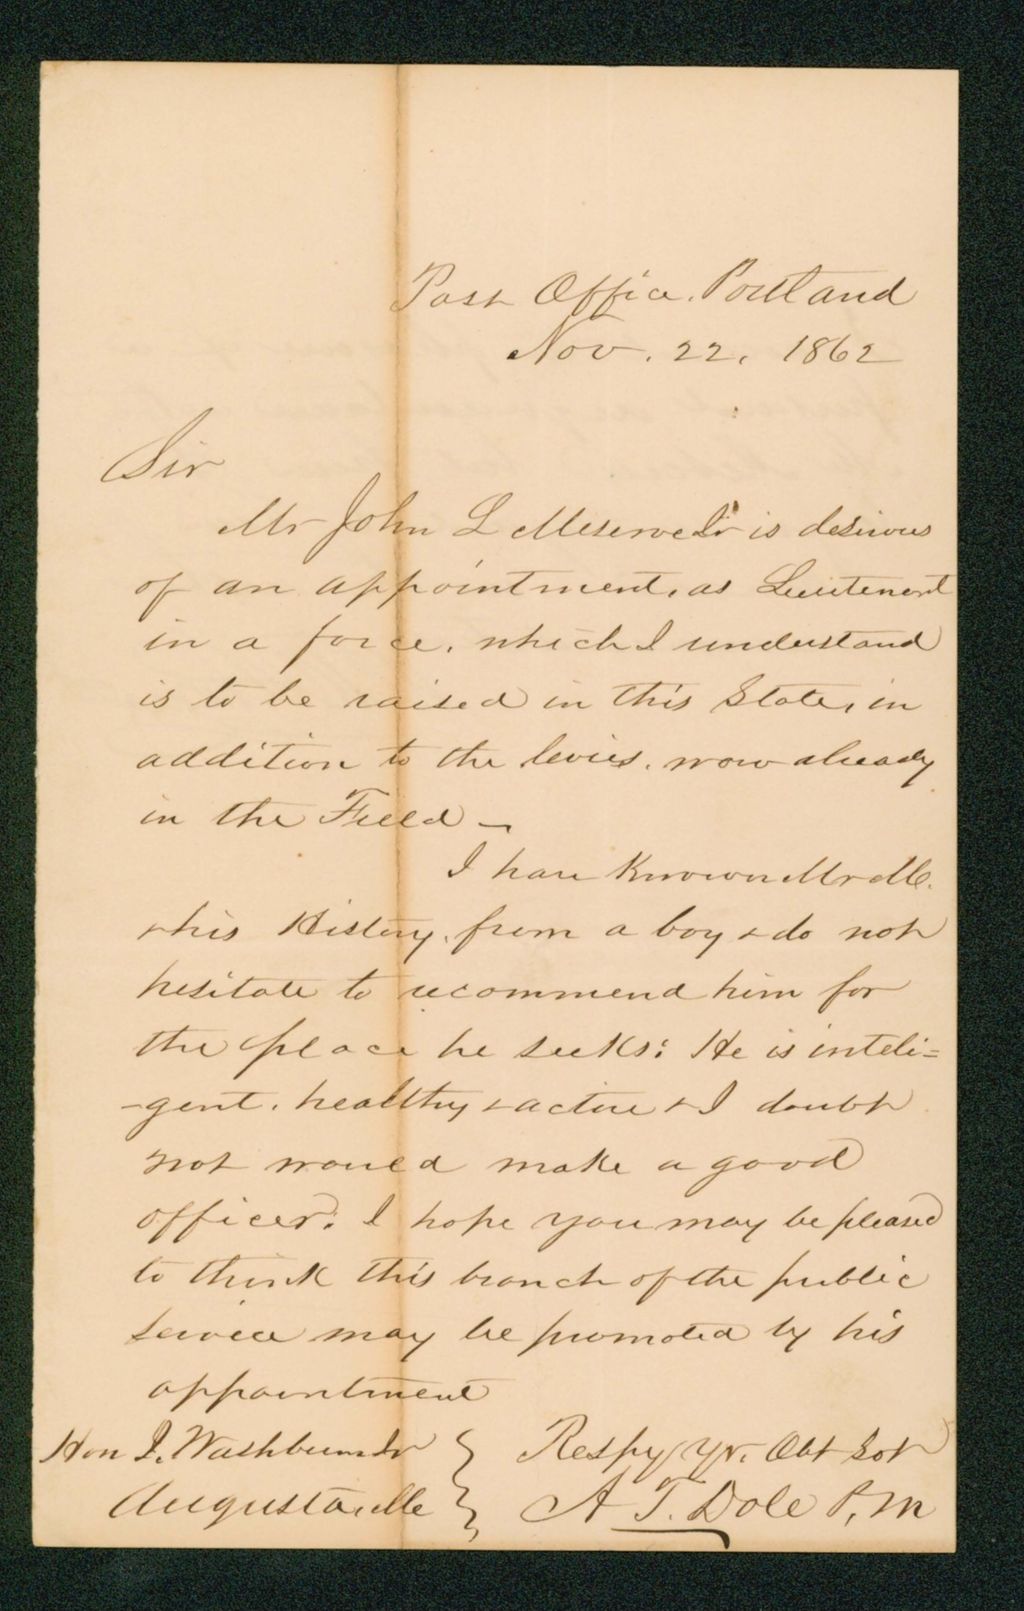 Post Office. Portland
Nov. 22. 1862
Sir
Mr John L Meserve Jr is desirous
of an appointment, as Lieutenent
in a force, which I understand
is to be raised in this State, in
addition to the levies, now already
in the Field —
I have Known Mr M.
& his History, from a boy & do not
hesitate to recommend him for
the place he seeks: He is inteli=
-gent, healthy & active & I doubt
not would make a good
officer. I hope you may be pleased
to think this branch of the public
service may be promoted by his
appointment
Hon I. Washburn Jr } Respy yr. Obt Svt
Augusta, Me } A T. Dole P. M